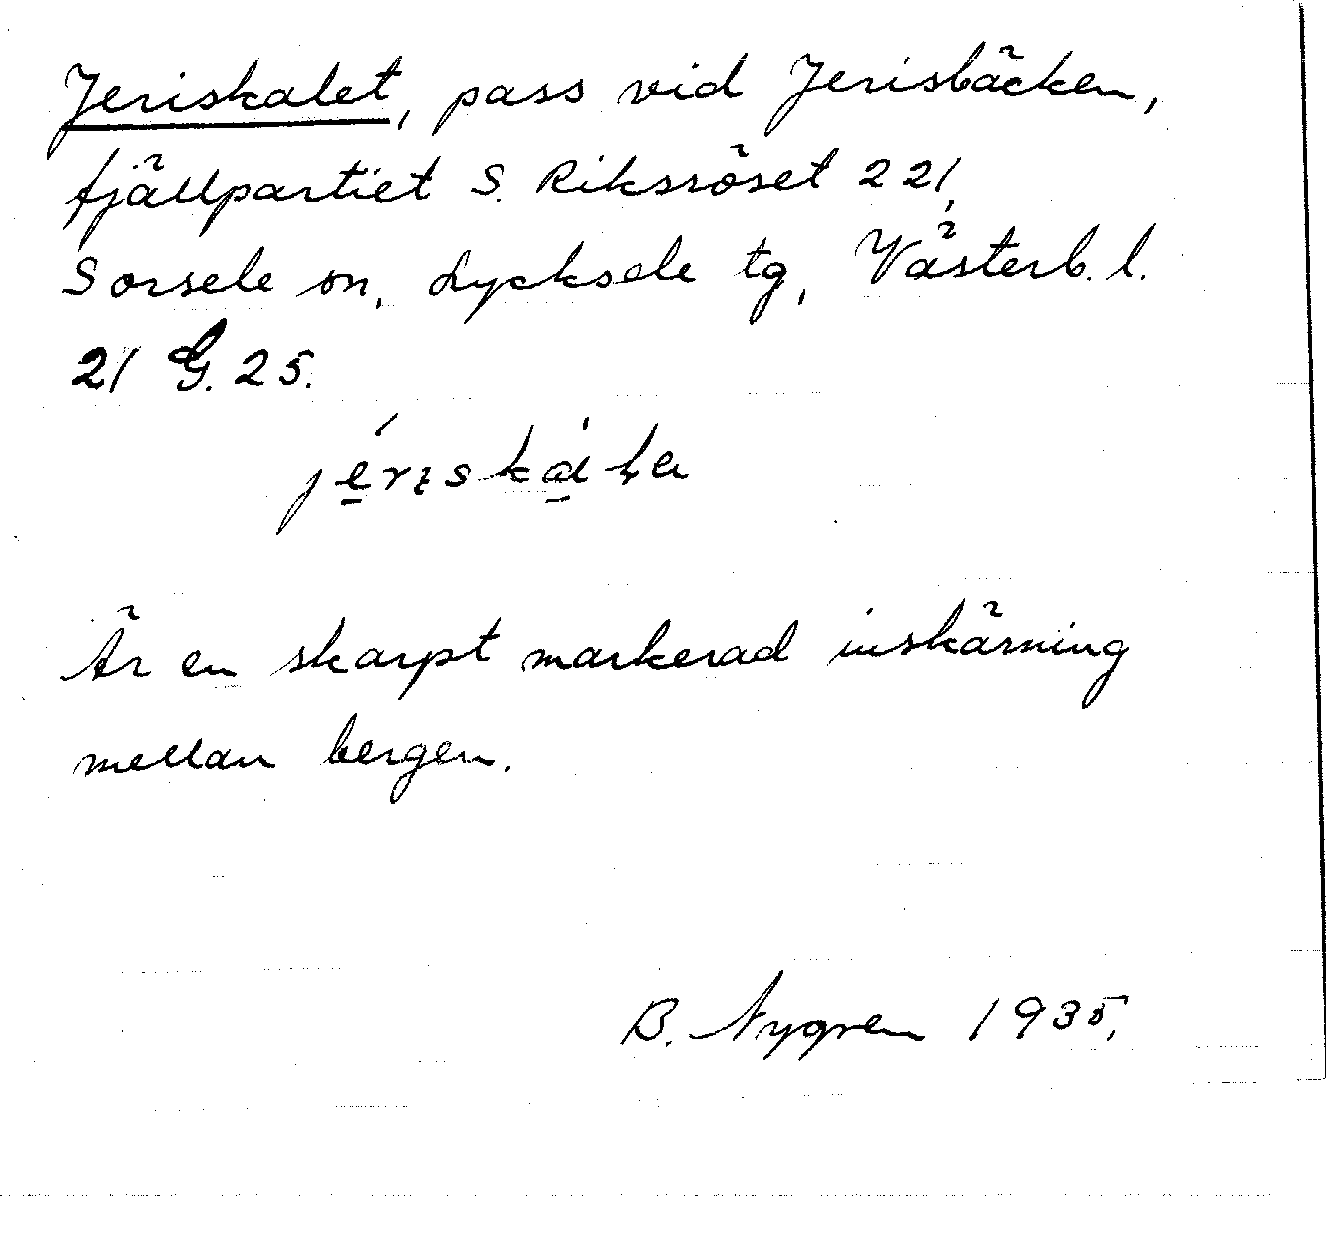 Jeriskalet, pass vid Jerisbäcken,
fjällpartiet S. Riksröset 221,
Sorsele sn, Lycksele tg, Västerb. l.
21 G. 25.
Är en skarpt markerad inskärning
mellan bergen.
B. Nygren 1935.